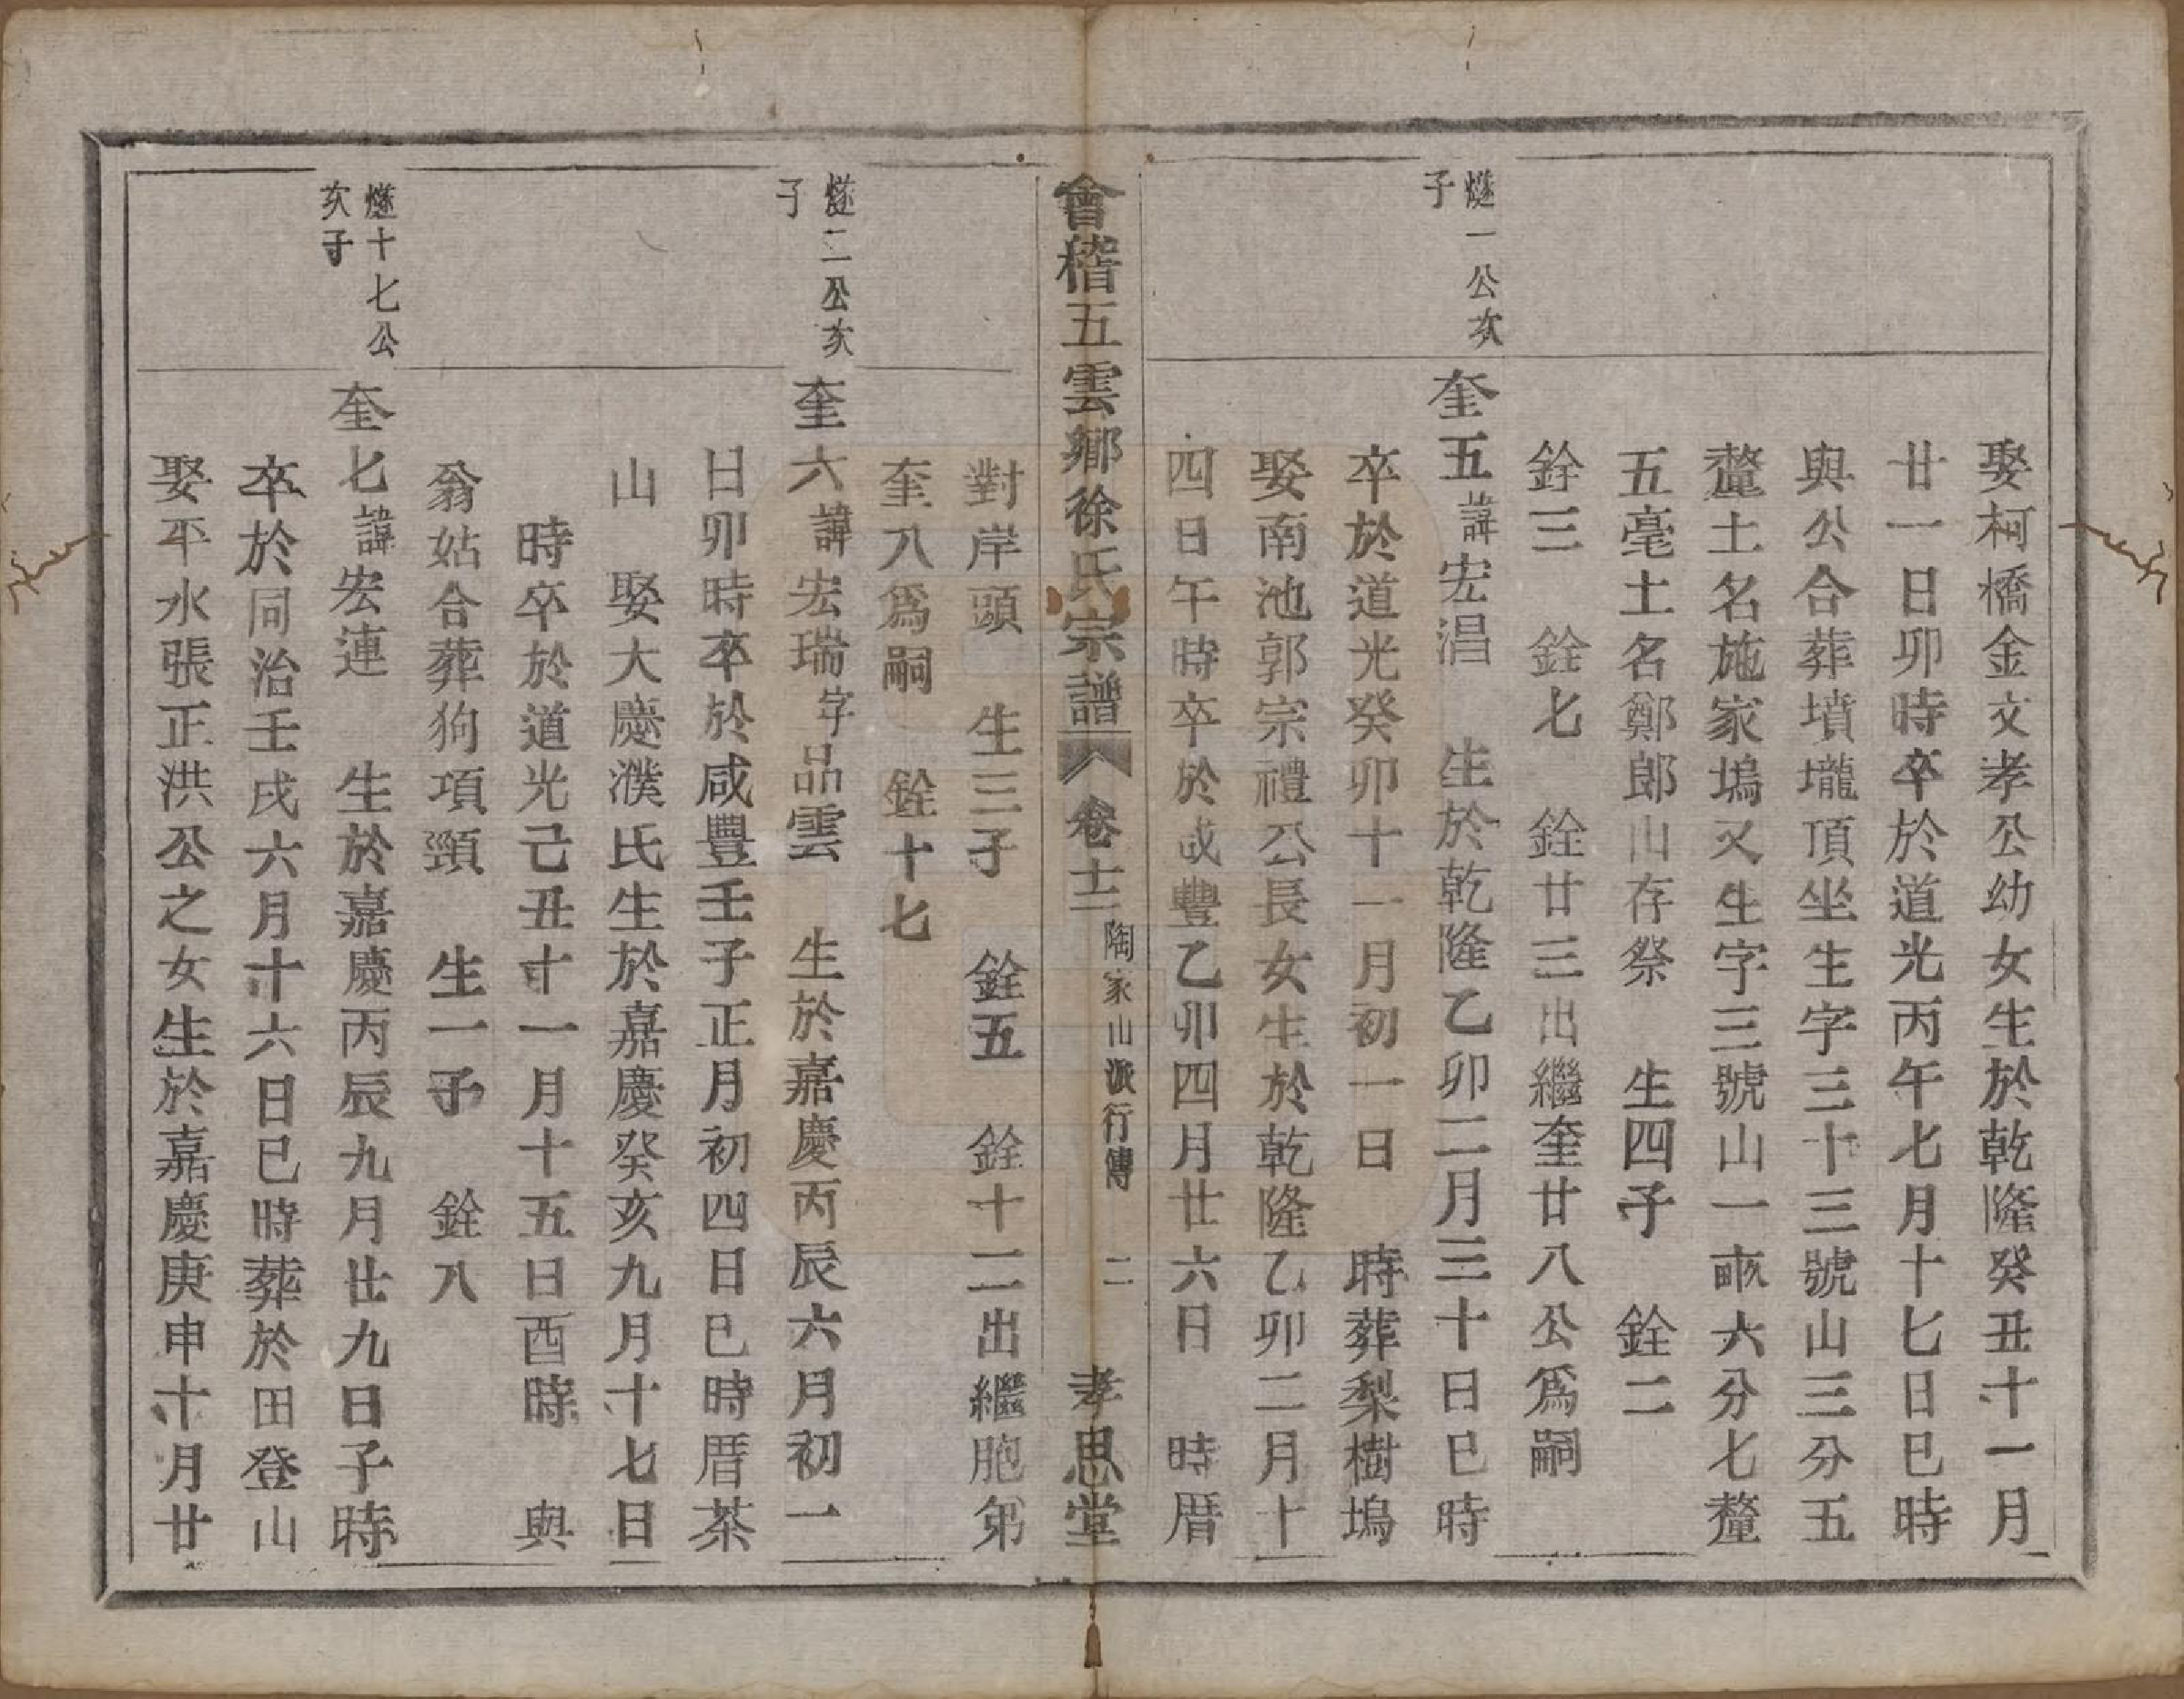 娶柯橋金文孝公幼女生於乾隆癸丑十一月
廿一日卯時卒於道光丙午七月十七日巳時
與公合葬墳壠頂坐生字三十三號山三分五
釐土名施家塢又生字三號山一畝六分七釐
五毫土名鄭郎山存祭　生四子　銓二
銓三　銓七　銓廿三出繼奎廿八公爲嗣
燧一公次子
奎五諱宏淐　生於乾隆乙卯二月三十日巳時
卒於道光癸卯十一月初一日　時葬梨樹塢
娶南池郭宗禮公長女生於乾隆乙卯二月十
四日午時卒於咸豐乙卯四月廿六日　時厝
會稽五雲鄉徐氏宗譜　卷十二　陶家山派行傳　二　孝思堂
對岸頭　生三子　銓五　銓十二出繼胞弟
奎八爲嗣　銓十七
燧二公次子
奎六諱宏瑞字品雲　生於嘉慶丙辰六月初一
日卯時卒於咸豐壬子正月初四日巳時厝茶
山　娶大慶濮氏生於嘉慶癸亥九月十七日
時卒於道光己丑十一月十五日酉時　與
翁姑合葬狗項頸　生一子　銓八
燧十七公次子
奎七諱宏連　生於嘉慶丙辰九月廿九日子時
卒於同治壬戌六月十六日巳時葬於田登山
娶平水張正洪公之女生於嘉慶庚申十月廿